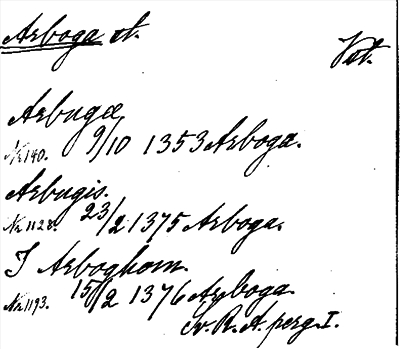 Arboga st. Vstl.
Arbugæ
Nr 140. 9/10 1353 Arboga.
Arbugis.
Nr 1128. 23/2 1375 Arboga.
I Arboghom.
Nr 1193. 15/2 1376 Arboga.
Sv. R. A. perg. I.